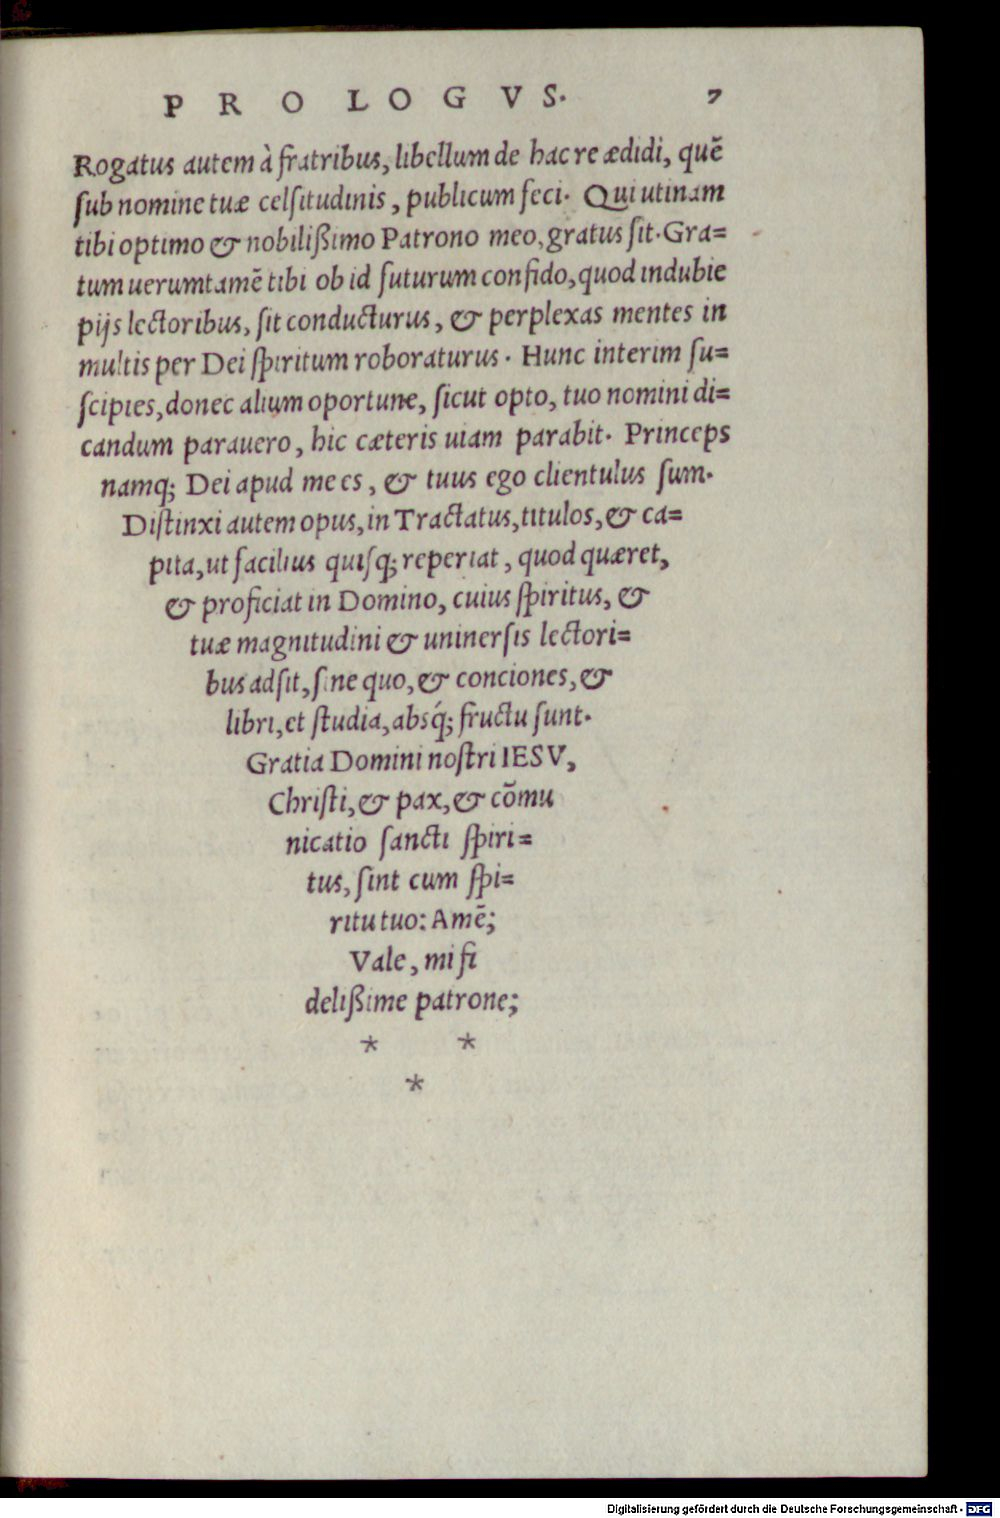 PROLOGVS. 7
Rogatus autem à fratribus, libellum de hac re ædidi, quẽ
sub nomine tuæ celſitudinis, publicum feci. Qui utinam
tibi optimo & nobilißimo Patrono meo, gratus ſit. Gra=
tum uerumtamẽ tibi ob id futurum confido, quod indubie
pijs lectoribus, ſit conducturus, & perplexas mentes in
multis per Dei ſpiritum roboraturus. Hunc interim ſu=
ſcipies, donec alium oportune, ſicut opto, tuo nomini di=
candum parauero, hic cæteris uiam parabit. Princeps
namq; Dei apud me es, & tuus ego clientulus ſum.
Diſtinxi autem opus, in Tractatus, titulos, & ca=
pita, ut facilius quiſq; reperiat, quod quæret,
& proficiat in Domino, cuius ſpiritus, &
tuæ magnitudini & uninerſis lectori=
bus adſit, ſine quo, & conciones, &
libri, et ſtudia, absq́; fructu ſunt.
Gratia Domini noſtri IESV,
Chriſti, & pax, & cõmu
nicatio ſancti ſpiri=
tus, ſint cum ſpi=
ritu tuo: Amẽ;
Vale, mi fi
delißime patrone;
* *
*
Digitalisierung gefördert durch die Deutsche Forschungsgemeinschaft - DFG